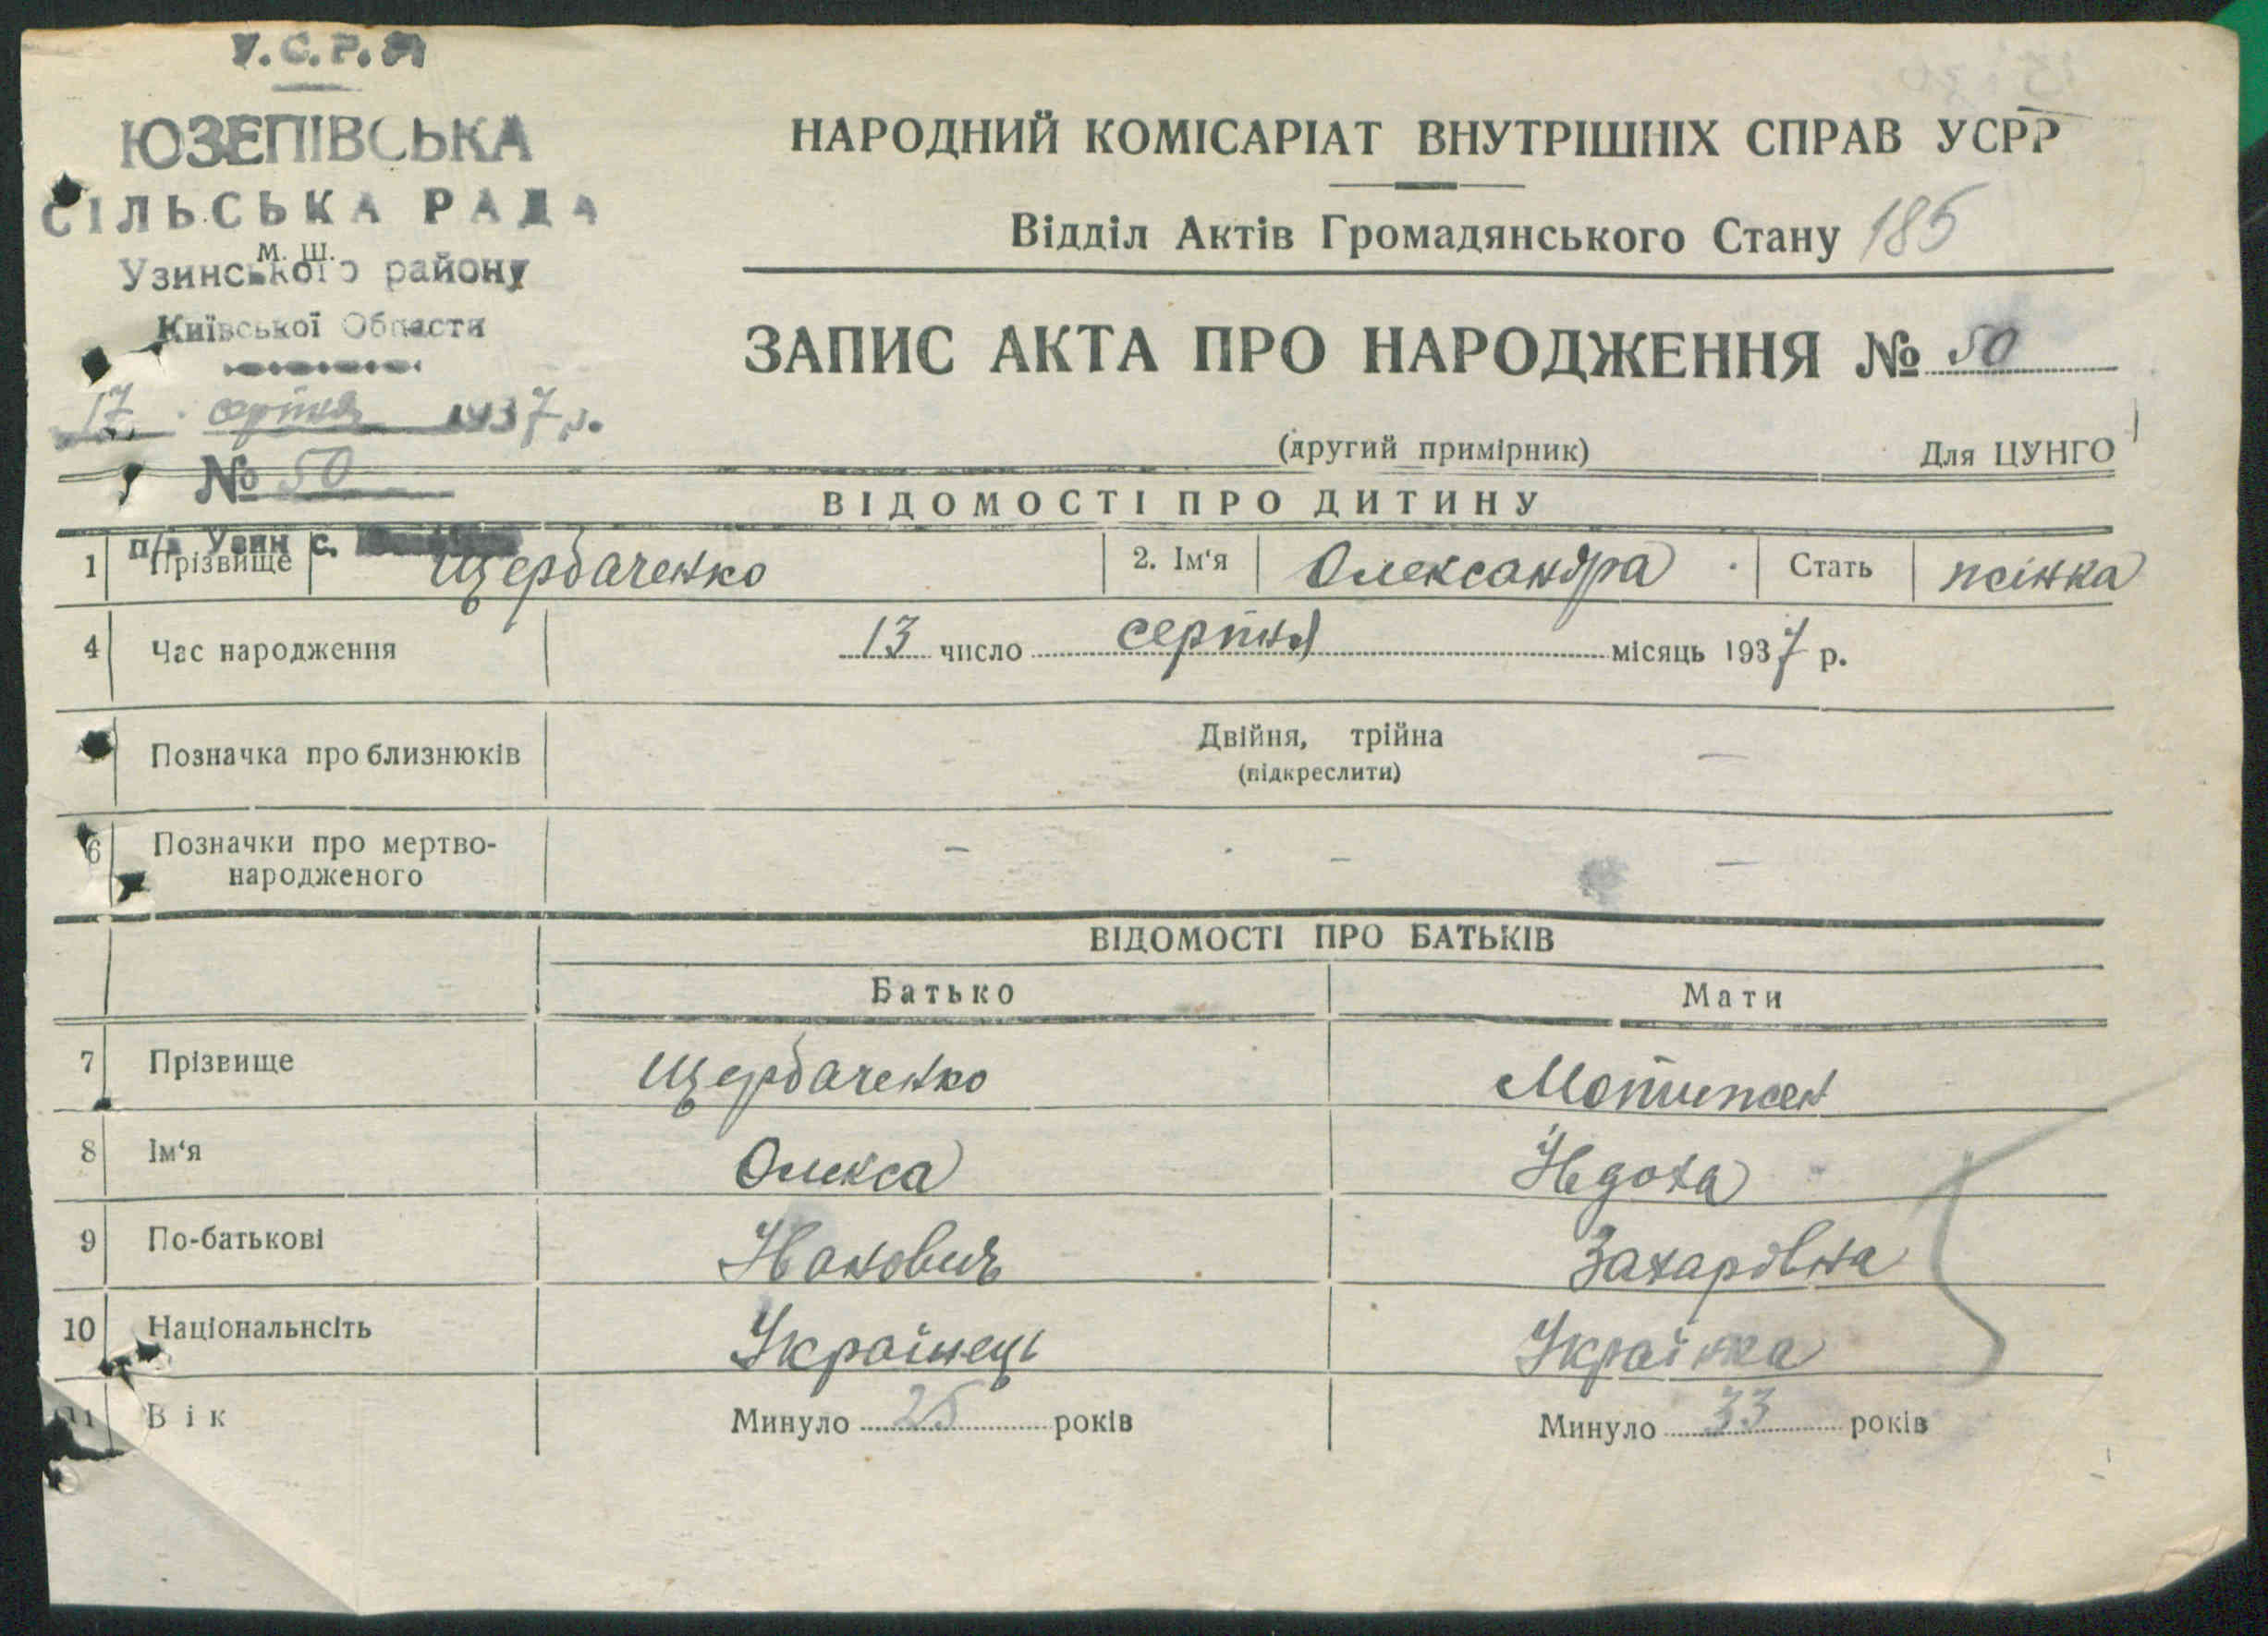 У.С.Р.Р
ЮЗЕПІВСЬКА
СІЛЬСЬКА РАДА
М. Ш.
Узинського району
Київської Області
17 серпня 1937 р.
№ 50
п/в Узин с.
НАРОДНИЙ КОМІСАРІАТ ВНУТРІШНІХ СПРАВ УСРР
Відділ Актів Громадянського Стану 185
ЗАПИС АКТА ПРО НАРОДЖЕННЯ № 50
(другий примірник) Для ЦУНГО
ВІДОМОСТІ ПРО ДИТИНУ
1 Прізвище Щербаченко 2. Ім‘я Олександра Стать жінка
4 Час народження 13 число серпня місяць 1937 р.
Позначка про близнюків Двійня, трійна –
(підкреслити)
6 Позначки про мертво-
народженого – – –
ВІДОМОСТІ ПРО БАТЬКІВ
Батько Мати
7 Прізвище Щербаченко
8 Ім‘я Олекса Явдоха
9 По-батькові Захарівна
10 Національнсіть Українець Українка
11 Вік Минуло 25 років Минуло 33 років